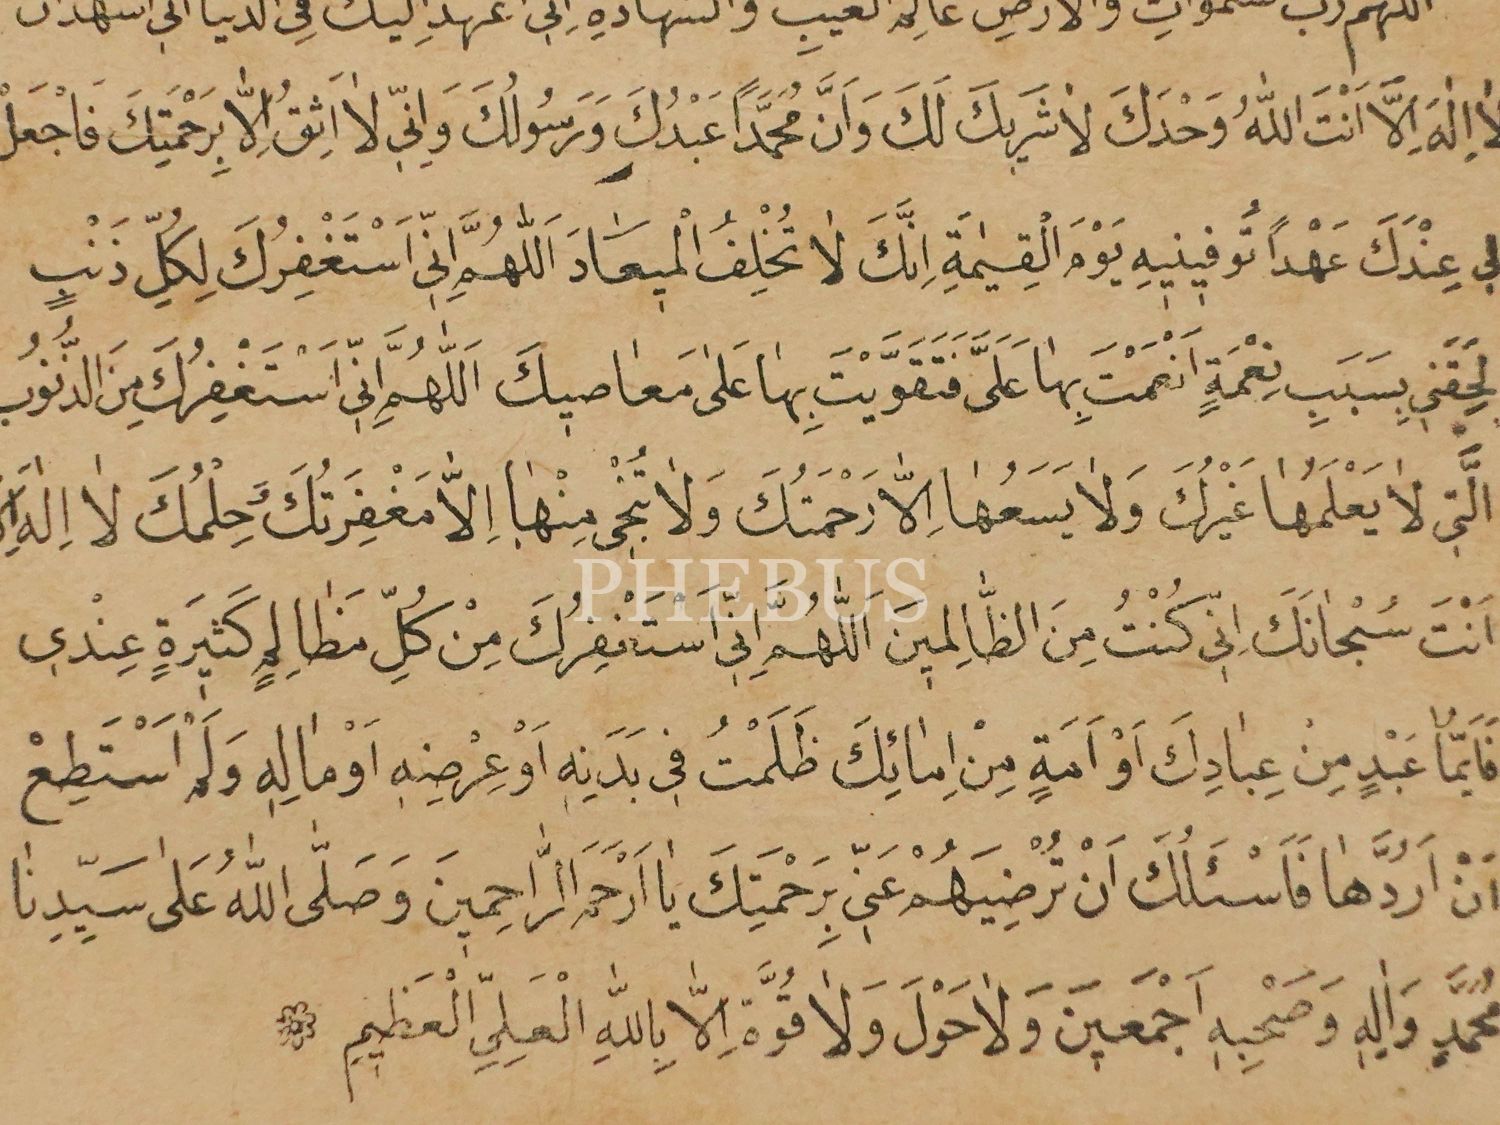 اللهم رب السموات والارض عالم الغيب والشهادة اني اعهد اليك في الدنيا اني اشهد ان
لَا اِلٰهَ اِلَّا اَنْتَ اللّٰهُ وَحْدَكَ لَا شَرِيكَ لَكَ وَاَنَّ مُحَمَّدًا عَبْدُكَ وَرَسُولُكَ وَاِنّٖي لَا اَثِقُ اِلَّا بِرَحْمَتِكَ فَاجْعَلْ
لٖي عِنْدَكَ عَهْدًا تُوَفّٖينٖيهِ يَوْمَ الْقِيٰمَةِ اِنَّكَ لَا تُخْلِفُ الْمٖيعَادَ اَللّٰهُمَّ اِنّٖي اَسْتَغْفِرُكَ لِكُلِّ ذَنْبٍ
لَحِقَنٖي بِسَبَبِ نِعْمَةٍ اَنْعَمْتَ بِهَا عَلَيَّ فَتَقَوَّيْتُ بِهَا عَلٰى مَعَاصٖيكَ اَللّٰهُمَّ اِنّٖي اَسْتَغْفِرُكَ مِنَ الذُّنُوبِ
الَّتٖي لَا يَعْلَمُهَا غَيْرُكَ وَلَا يَسَعُهَا اِلَّا رَحْمَتُكَ وَلَا تُنْجٖي مِنْهَا اِلَّا مَغْفِرَتُكَ وَحِلْمُكَ لَا اِلٰهَ اِلَّا
اَنْتَ سُبْحَانَكَ اِنّٖي كُنْتُ مِنَ الظَّالِمٖينَ اَللّٰهُمَّ اِنّٖي اَسْتَغْفِرُكَ مِنْ كُلِّ مَظَالِمٍ كَثٖيرَةٍ عِنْدٖي
فَاَيُّمَا عَبْدٍ مِنْ عِبَادِكَ اَوْ اَمَةٍ مِنْ اِمَائِكَ ظَلَمْتُ فٖي بَدَنِهٖ اَوْ عِرْضِهٖ اَوْ مَالِهٖ وَلَمْ اَسْتَطِعْ
اَنْ اَرُدَّهَا فَاَسْئَلُكَ اَنْ تُرْضِيَهُمْ عَنّٖي بِرَحْمَتِكَ يَا اَرْحَمَ الرَّاحِمٖينَ وَصَلَّى اللّٰهُ عَلٰى سَيِّدِنَا
مُحَمَّدٍ وَاٰلِهٖ وَصَحْبِهٖ اَجْمَعٖينَ وَلَا حَوْلَ وَلَا قُوَّةَ اِلَّا بِاللّٰهِ الْعَلِيِّ الْعَظٖيمِ
PHEBUS